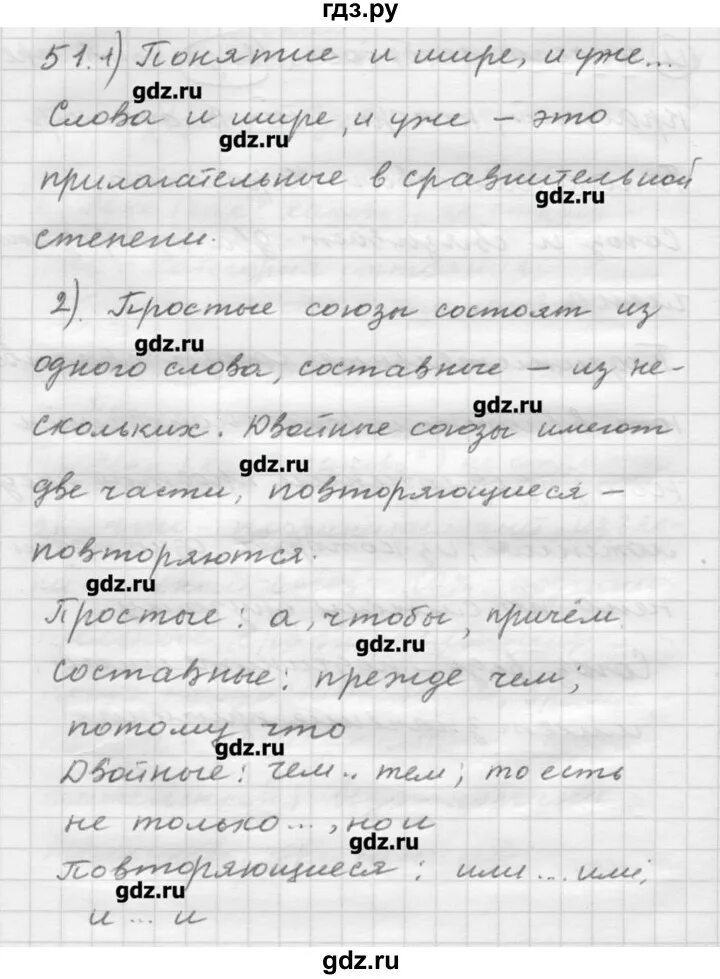 гдз.ру
51.1) Понятие и шире, и уже...
gdz.ru
Слова и шире, и уже – это
gdz.ru
прилагательные в сравнительной
gdz.ru
степени.
2). Простые союзы состоят из
gdz.ru
одного слова, составные – из не-
gdz.ru
скольких. Двойные союзы имеют
gdz.ru
две части, повторяющиеся –
повторяются.
gdz.ru
Простые: а, чтобы, причём
gdz.ru
Составные: прежде чем;
потому что
gdz.ru
Двойные: чем.. тем; то есть
не только..., но и
gdz.ru
Повторяющиеся: или... или;
gdz.ru
и ... и
gdz.ru